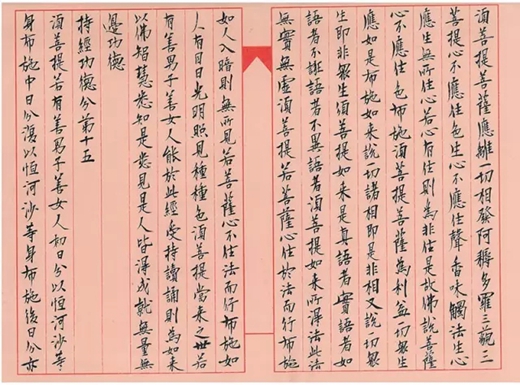 須菩提菩薩應離一切相發阿耨多羅三藐三
菩提心不應住色生心不應住聲香味觸法生心
應生無所住心若心有住則為非住是故佛說菩薩
心不應住色布施須菩提菩薩為利益一切眾生
應如是布施如來說一切諸相即是非相又說一切眾
生即非眾生須菩提如來是真語者實語者如
語者不誑語者不異語者須菩提如來所得法此法
無實無虛須菩提若菩薩心住於法而行布施
如人入暗則無所見若菩薩心不住法而行布施如
人有目日光明照見種種色須菩提當來之世若
有善男子善女人能於此經受持讀誦則為如來
以佛智慧悉知是人悉見是人皆得成就無量無
邊功德
持經功德分第十五
須菩提若有善男子善女人初日分以恒河沙等
身布施中日分復以恒河沙等身布施後日分亦